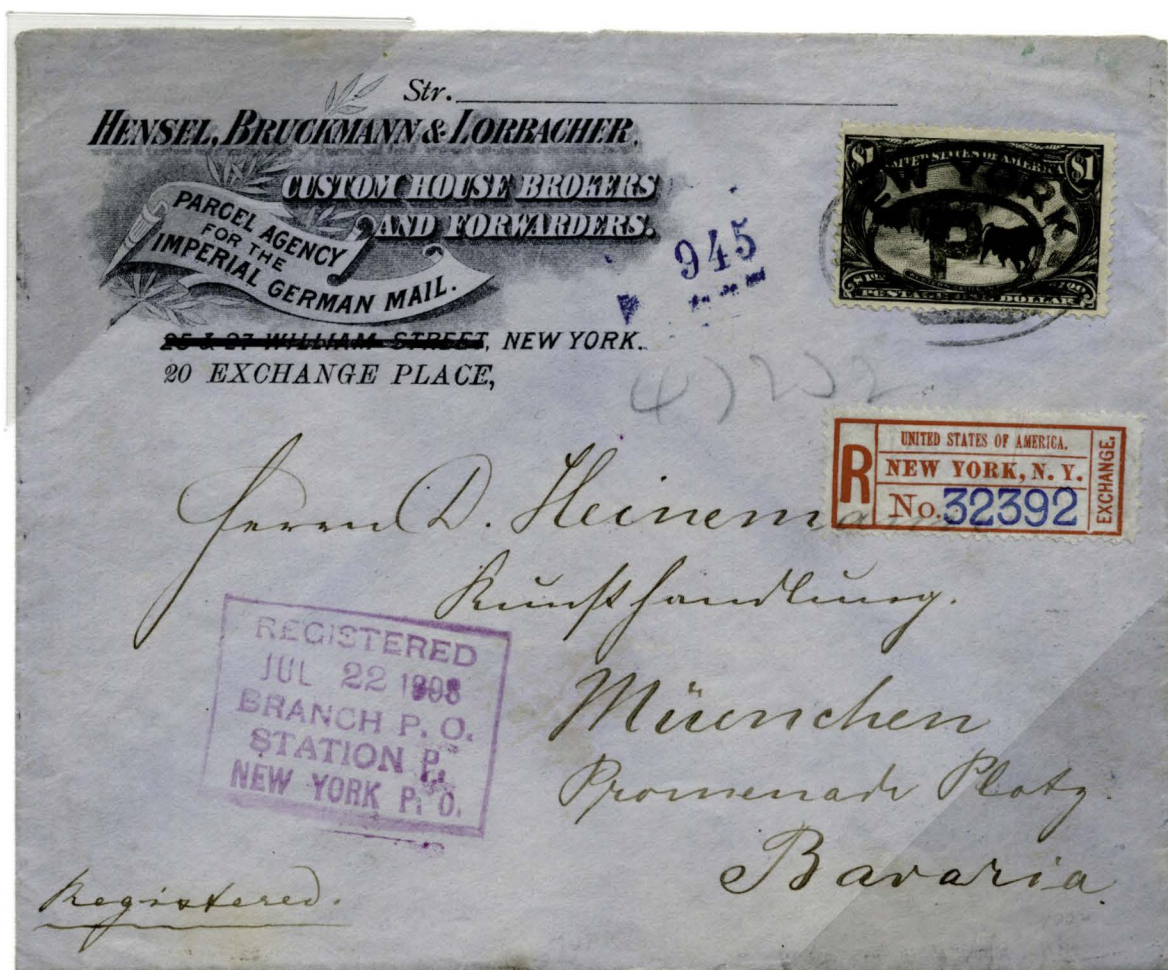 Str.
HENSEL, BRUCKMANN & LORBACHER,
CUSTOM HOUSE BROKERS
AND FORWARDERS.
PARCEL AGENCY
FOR THE
IMPERIAL GERMAN MAIL.
25 & 27 WILLIAM STREET, NEW YORK.
20 EXCHANGE PLACE,
945
$1 UNITED STATES OF AMERICA $1
POSTAGE ONE DOLLAR
NEW YORK
P
47232
R
UNITED STATES OF AMERICA.
NEW YORK, N. Y.
No. 32392
EXCHANGE.
Herrn D. Heinemann
Kunsthandlung.
Müenchen
Promenade Platz.
Bavaria.
REGISTERED
JUL 22 1898
BRANCH P. O.
STATION P,
NEW YORK P. O.
Registered.